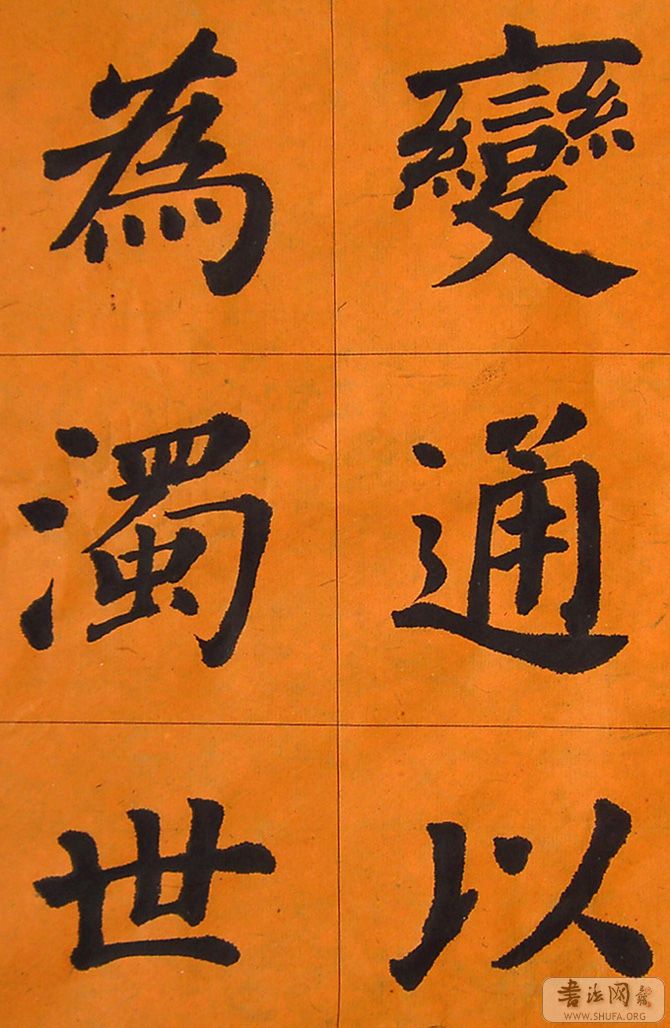 變通以
為濁世
书法网
WWW.SHUFA.ORG